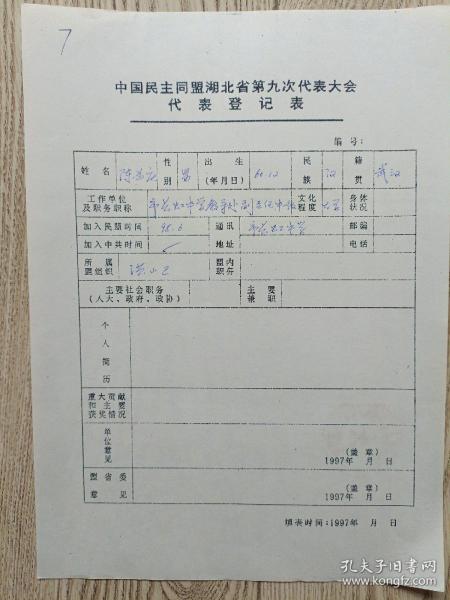 7
中国民主同盟湖北省第九次代表大会
代表登记表
编号:
姓名 陈 性别 男 出生(年月日) 60.12 民族 汉 籍贯 武汉
工作单位及职务职称 文化程度 大学 身体状况
加入民盟时间 95.6 通讯地址 邮编
加入中共时间 电话
所属盟组织 洪山区 盟内职务
主要社会职务(人大、政府、政协) 主要兼职
个人简历
重大贡献和主要获奖情况
单位意见
(盖章)
1997年 月 日
盟省委意见
(盖章)
1997年 月 日
填表时间:1997年 月 日
孔夫子旧书网
www.kongfz.com